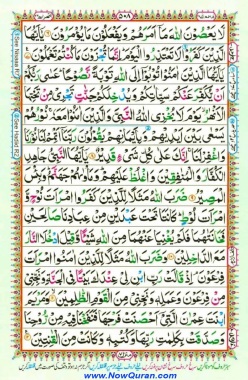 ۵۰۹
لَا يَعْصُوْنَ اللّٰهَ مَاۤ اَمَرَهُمْ وَيَفْعَلُوْنَ مَا يُؤْمَرُوْنَ ۝ يٰۤاَيُّهَا
الَّذِيْنَ كَفَرُوْا لَا تَعْتَذِرُوا الْيَوْمَ اِنَّمَا تُجْزَوْنَ مَا كُنْتُمْ تَعْمَلُوْنَ ۝
يٰۤاَيُّهَا الَّذِيْنَ اٰمَنُوْا تُوْبُوْۤا اِلَى اللّٰهِ تَوْبَةً نَّصُوْحًا عَسٰى رَبُّكُمْ
اَنْ يُّكَفِّرَ عَنْكُمْ سَيِّاٰتِكُمْ وَيُدْخِلَكُمْ جَنّٰتٍ تَجْرِيْ مِنْ تَحْتِهَا
الْاَنْهٰرُ يَوْمَ لَا يُخْزِي اللّٰهُ النَّبِيَّ وَالَّذِيْنَ اٰمَنُوْا مَعَهٗ نُوْرُهُمْ
يَسْعٰى بَيْنَ اَيْدِيْهِمْ وَبِاَيْمَانِهِمْ يَقُوْلُوْنَ رَبَّنَاۤ اَتْمِمْ لَنَا نُوْرَنَا
وَاغْفِرْ لَنَا اِنَّكَ عَلٰى كُلِّ شَيْءٍ قَدِيْرٌ ۝ يٰۤاَيُّهَا النَّبِيُّ جَاهِدِ
الْكُفَّارَ وَالْمُنٰفِقِيْنَ وَاغْلُظْ عَلَيْهِمْ وَمَاْوٰىهُمْ جَهَنَّمُ وَبِئْسَ
الْمَصِيْرُ ۝ ضَرَبَ اللّٰهُ مَثَلًا لِّلَّذِيْنَ كَفَرُوا امْرَاَتَ نُوْحٍ وَّ
امْرَاَتَ لُوْطٍ كَانَتَا تَحْتَ عَبْدَيْنِ مِنْ عِبَادِنَا صَالِحَيْنِ
فَخَانَتٰهُمَا فَلَمْ يُغْنِيَا عَنْهُمَا مِنَ اللّٰهِ شَيْـًٔا وَّقِيْلَ ادْخُلَا النَّارَ
مَعَ الدَّاخِلِيْنَ ۝ وَضَرَبَ اللّٰهُ مَثَلًا لِّلَّذِيْنَ اٰمَنُوا امْرَاَتَ
فِرْعَوْنَ اِذْ قَالَتْ رَبِّ ابْنِ لِيْ عِنْدَكَ بَيْتًا فِي الْجَنَّةِ وَنَجِّنِيْ
مِنْ فِرْعَوْنَ وَعَمَلِهٖ وَنَجِّنِيْ مِنَ الْقَوْمِ الظّٰلِمِيْنَ ۝ وَمَرْيَمَ
ابْنَتَ عِمْرٰنَ الَّتِيْۤ اَحْصَنَتْ فَرْجَهَا فَنَفَخْنَا فِيْهِ مِنْ رُّوْحِنَا
وَصَدَّقَتْ بِكَلِمٰتِ رَبِّهَا وَكُتُبِهٖ وَكَانَتْ مِنَ الْقٰنِتِيْنَ ۝
www.NowQuran.com